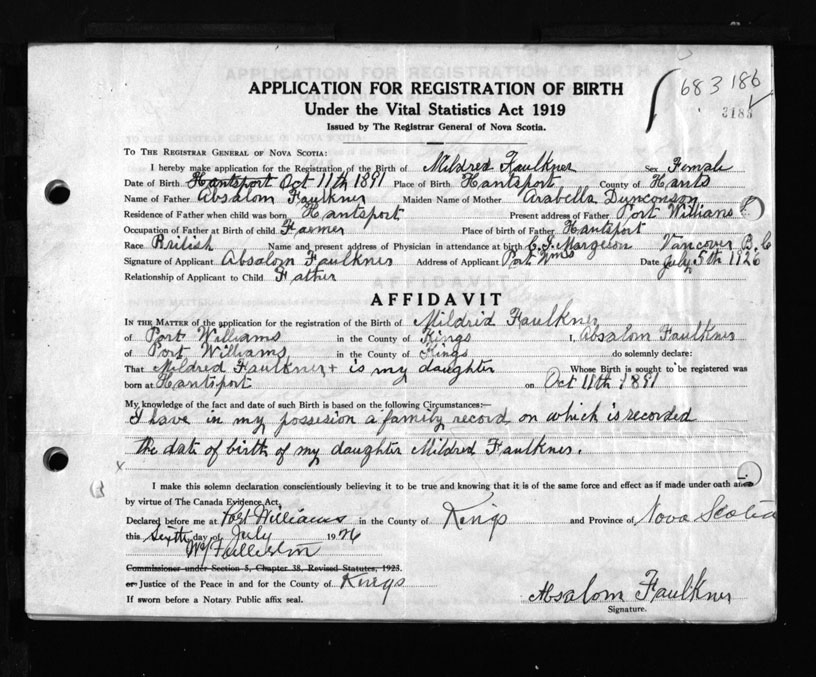 APPLICATION FOR REGISTRATION OF BIRTH
683186
Under the Vital Statistics Act 1919
3183
Issued by The Registrar General of Nova Scotia.
TO THE REGISTRAR GENERAL OF NOVA SCOTIA:
I hereby make application for the Registration of the Birth of Mildred Faulkner Sex Female
Date of Birth Hantsport Oct 11th 1891 Place of Birth Hantsport County of Hants
Name of Father Absalom Faulkner Maiden Name of Mother Arabella Dunconson
Residence of Father when child was born Hantsport Present address of Father Port Williams
Occupation of Father at Birth of child Farmer Place of birth of Father Hantsport
Race British Name and present address of Physician in attendance at birth C. J. Margeson Vancover B.C
Signature of Applicant Absalom Faulkner Address of Applicant Port Wms Date July 5th 1926
Relationship of Applicant to Child Father
AFFIDAVIT
IN THE MATTER of the application for the registration of the Birth of Mildrid Faulkner
of Port Williams in the County of Kings I, Absalom Faulkner
of Port Williams in the County of Kings do solemnly declare:
That Mildred Faulkner + is my daughter Whose Birth is sought to be registered was
born at Hantsport on Oct 11th 1891
My knowledge of the fact and date of such Birth is based on the following Circumstances:—
I have in my possesion a family record on which is recorded
the date of birth of my daughter Mildred Faulkner.
x
I make this solemn declaration conscientiously believing it to be true and knowing that it is of the same force and effect as if made under oath and
by virtue of The Canada Evidence Act,
Declared before me at Port Williams in the County of Kings and Province of Nova Scotia
this Sixth day of July 1926
Commissioner under Section 5, Chapter 38, Revised Statutes, 1923.
or Justice of the Peace in and for the County of Kings
Absalom Faulkner
If sworn before a Notary Public affix seal.
Signature.